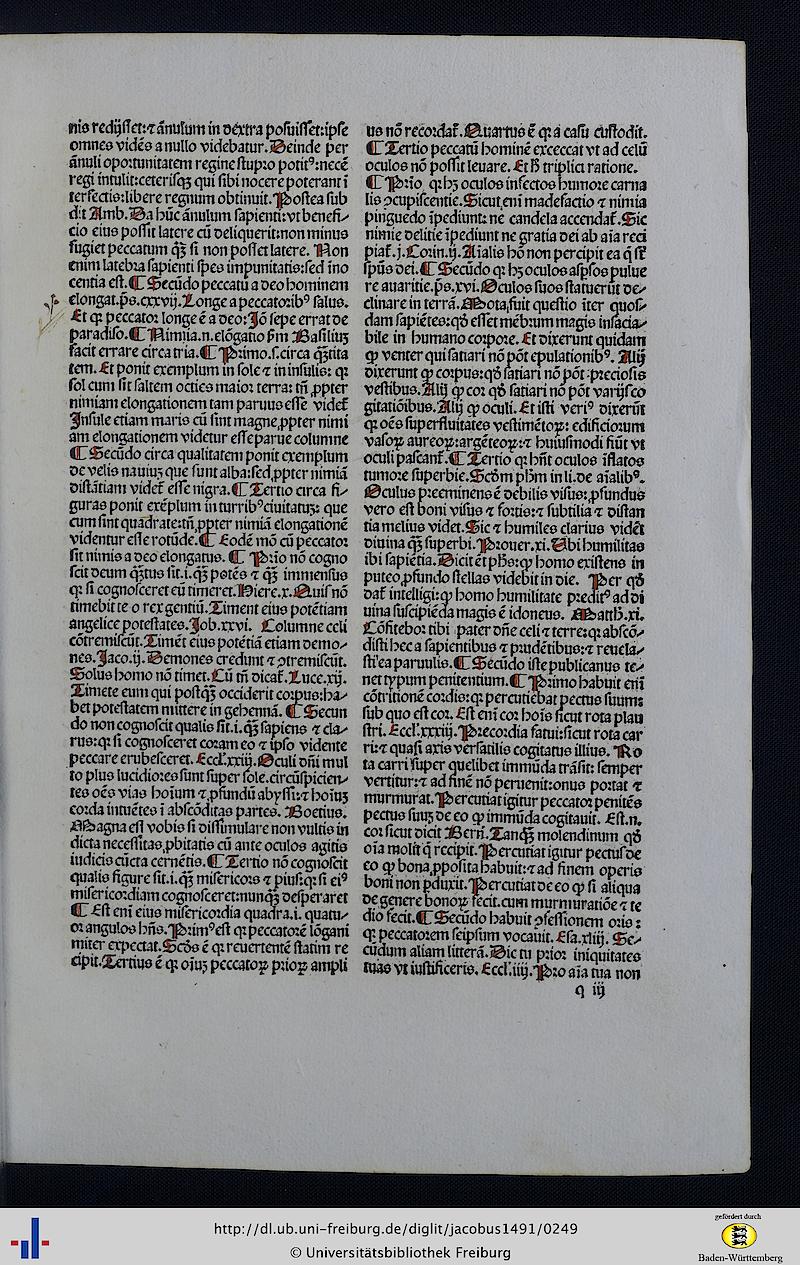 nis redijsset: ⁊ ãnulum in dextra posuisset: ipse
omnes vidẽs a nullo videbatur. Deinde per
ãnuli oportunitatem regine stupro potitꝰ: necẽ
regi intulit: ceterisqꝫ qui sibi nocere poterant ĩ
terfectis: libere regnum obtinuit. Postea sub
dit Amb. Da hũc ãnulum sapienti: vt benefi⸗
cio eius possit latere cũ deliquerit: non minus
fugiet peccatum q̃ꝫ si non posset latere. Non
enim latebra sapienti spes impunitatis: sed ĩno
centia est. ¶ Secũdo peccatũ a deo hominem
elongat. p̃s. cxxvij. Longe a peccatoribꝰ salus.
Et qꝛ peccator longe ẽ a deo: Jõ sepe errat de
paradiso. ¶ Nimia. n. elõgatio ẜm Basiliuꝫ
facit errare circa tria. ¶ Primo. s. circa q̃ꝫtita
tem. Et ponit exemplum in sole ⁊ in insulis: qꝛ
sol cum sit saltem octies maior terra: tñ ꝓpter
nimiam elongationem tam paruus esse videt̃
Jnsule etiam maris cũ sint magne, ꝓpter nimi
am elongationem videtur esse parue columne
¶ Secũdo circa qualitatem ponit exemplum
de velis nauiuꝫ que sunt alba: sed, ꝓpter nimiã
distãtiam videt̃ esse nigra. ¶ Tertio circa fi⸗
guras ponit exẽplum in turribꝰ ciuitatuꝫ: que
cum sint quadrate: tñ, ꝓpter nimiã elongationẽ
videntur esse rotũde. ¶ Eodẽ mõ cũ peccator
sit nimis a deo elongatus. ¶ Prĩo nõ cogno
scit deum q̃ꝫtus sit. i. q̃ꝫ potẽs ⁊ q̃ꝫ immensus
qꝛ si cognosceret eũ timeret. Hiere. x. Quis nõ
timebit te o rex gentiũ. Timent eius potẽtiam
angelice potestates. Job. xxvi. Columne celi
cõtremiscũt. Timẽt eius potẽtiã etiam demo⸗
nes. Jaco. ij. Demones credunt ⁊ ꝯtremiscũt.
Solus homo nõ timet. Cũ tñ dicat̃. Luce. xij.
Timete eum qui postq̃ꝫ occiderit corpus: ha⸗
bet potestatem mittere in gehennã. ¶ Secun
do non cognoscit qualis sit. i. q̃ꝫ sapiens ⁊ cla⸗
rus: qꝛ si cognosceret coram eo ⁊ ip̃o vidente
peccare erubesceret. Eccl̃. xxiij. Oculi dñi mul
to plus lucidiores sunt super sole. circũspicien⸗
tes oẽs vias hoĩum ⁊ ꝓfundũ abyssi: ⁊ hoĩuꝫ
corda intuẽtes ĩ abscõditas partes. Boetius.
Magna est vobis si dissimulare non vultis in
dicta necessitas, ꝓbitatis cũ ante oculos agitis
iudicis cũcta cernẽtis. ¶ Tertio nõ cognoscit
qualis figure sit. i. q̃ꝫ misericors ⁊ piuſ: qꝛ si eiꝰ
misericordiam cognosceret: nunq̃ꝫ desperaret
¶ Est eni eius misericordia quadra. i. quatu⸗
or angulos hñs. Primꝰ est qꝛ peccatorẽ lõgani
miter expectat. Scd̃s ẽ qꝛ reuertentẽ statim re
cipit. Tertius ẽ qꝛ oĩuꝫ peccatoꝝ prioꝝ ampli
us nõ recordat̃. Quartus ẽ qꝛ a casu custodit.
¶ Tertio peccatũ hominẽ exceccat vt ad celũ
oculos nõ possit leuare. Et ħ triplici ratione.
¶ Prĩo qꝛ hꝫ oculos infectos humore carna
lis ꝯcupiscentie. Sicut, eni madefactio ⁊ nimia
pinguedo ĩpediunt: ne candela accendat̃. Sic
nimie delitie ĩpediunt ne gratia dei ab aĩa reci
piat̃. j. Corin. ij. Aĩalis hõ non percipit ea q̃ st̃
sp̃us dei. ¶ Secũdo qꝛ hꝫ oculos asp̃sos pulue
re auaritie. p̃s. xvi. Oculos suos statuerũt de⸗
clinare in terrã. Mota, fuit questio ĩter quos⸗
dam sapiẽtes: qð esset mẽbrum magis insacia⸗
bile in humano corpore. Et dixerunt quidam
ꝙ venter qui satiari nõ põt epulationibꝰ. Alij
dixerunt ꝙ corpus: qð satiari nõ põt preciosis
vestibus. Alij ꝙ cor qð satiari nõ põt varijs co
gitatiõibus. Alij ꝙ oculi. Et isti veriꝰ dixerũt
qꝛ oẽs superfluitates vestimẽtoꝝ: edificiorum
vasoꝝ aureoꝝ: argẽteoꝝ: ⁊ huiusmodi fiũt vt
oculi pascant̃. ¶ Tertio qꝛ hñt oculos ĩflatos
tumore superbie. Scd̃m ph̃m in li. de aĩalibꝰ.
Oculus preeminens ẽ debilis visus: ꝓfundus
vero est boni visus ⁊ fortis: ⁊ subtilia ⁊ distan
tia melius videt. Sic ⁊ humiles clarius vidẽt
diuina q̃ꝫ superbi. Prouer. xi. Ubi humilitas
ibi sapiẽtia. Dicit ẽt ph̃s: ꝙ homo existens in
puteo, ꝓfundo stellas videbit in die. Per qð
dat̃ intelligi: ꝙ homo humilitate preditꝰ ad di
uina suscipiẽda magis ẽ idoneus. Matth. xi.
Cõfitebor tibi pater dñe celi ⁊ terre: qꝛ abscõ⸗
disti hec a sapientibus ⁊ prudẽtibus: ⁊ reuela⸗
sti ea paruulis. ¶ Secũdo iste publicanus te⸗
net typum penitentium. ¶ Primo habuit eni
cõtritionẽ cordis: qꝛ percutiebat pectus suum:
sub quo est cor. Est eni cor hoĩs sicut rota plau
stri. Eccl̃. xxxiij. Precordia fatui: sicut rota car
ri: ⁊ quasi axis versatilis cogitatus illius. Ro
ta carri super quelibet immũda trãsit: semper
vertitur: ⁊ ad finẽ nõ peruenit: onus portat ⁊
murmurat. Percutiat igitur peccator penitẽs
pectus suuꝫ de eo ꝙ immũda cogitauit. Est. n.
cor sicut dicit Bern̄. Tanq̃ꝫ molendinum qð
oĩa molit q̃ recipit. Percutiat igitur pectus de
eo ꝙ bona, ꝓposita habuit: ⁊ ad finem operis
boni non ꝑduxit. Percutiat de eo ꝙ si aliqua
de genere bonoꝝ fecit. cum murmuratiõe ⁊ te
dio fecit. ¶ Secũdo habuit ꝯfessionem oris:
qꝛ peccatorem seipsum vocauit. Esa. xliij. Se⸗
cũdum aliam litterã. Dic tu prior iniquitates
tuas vt iustificeris. Eccl̃. iiij. Pro aĩa tua non
q iij
http://dl.ub.uni-freiburg.de/diglit/jacobus1491/0249
© Universitätsbibliothek Freiburg
gefördert durch
Baden-Württemberg